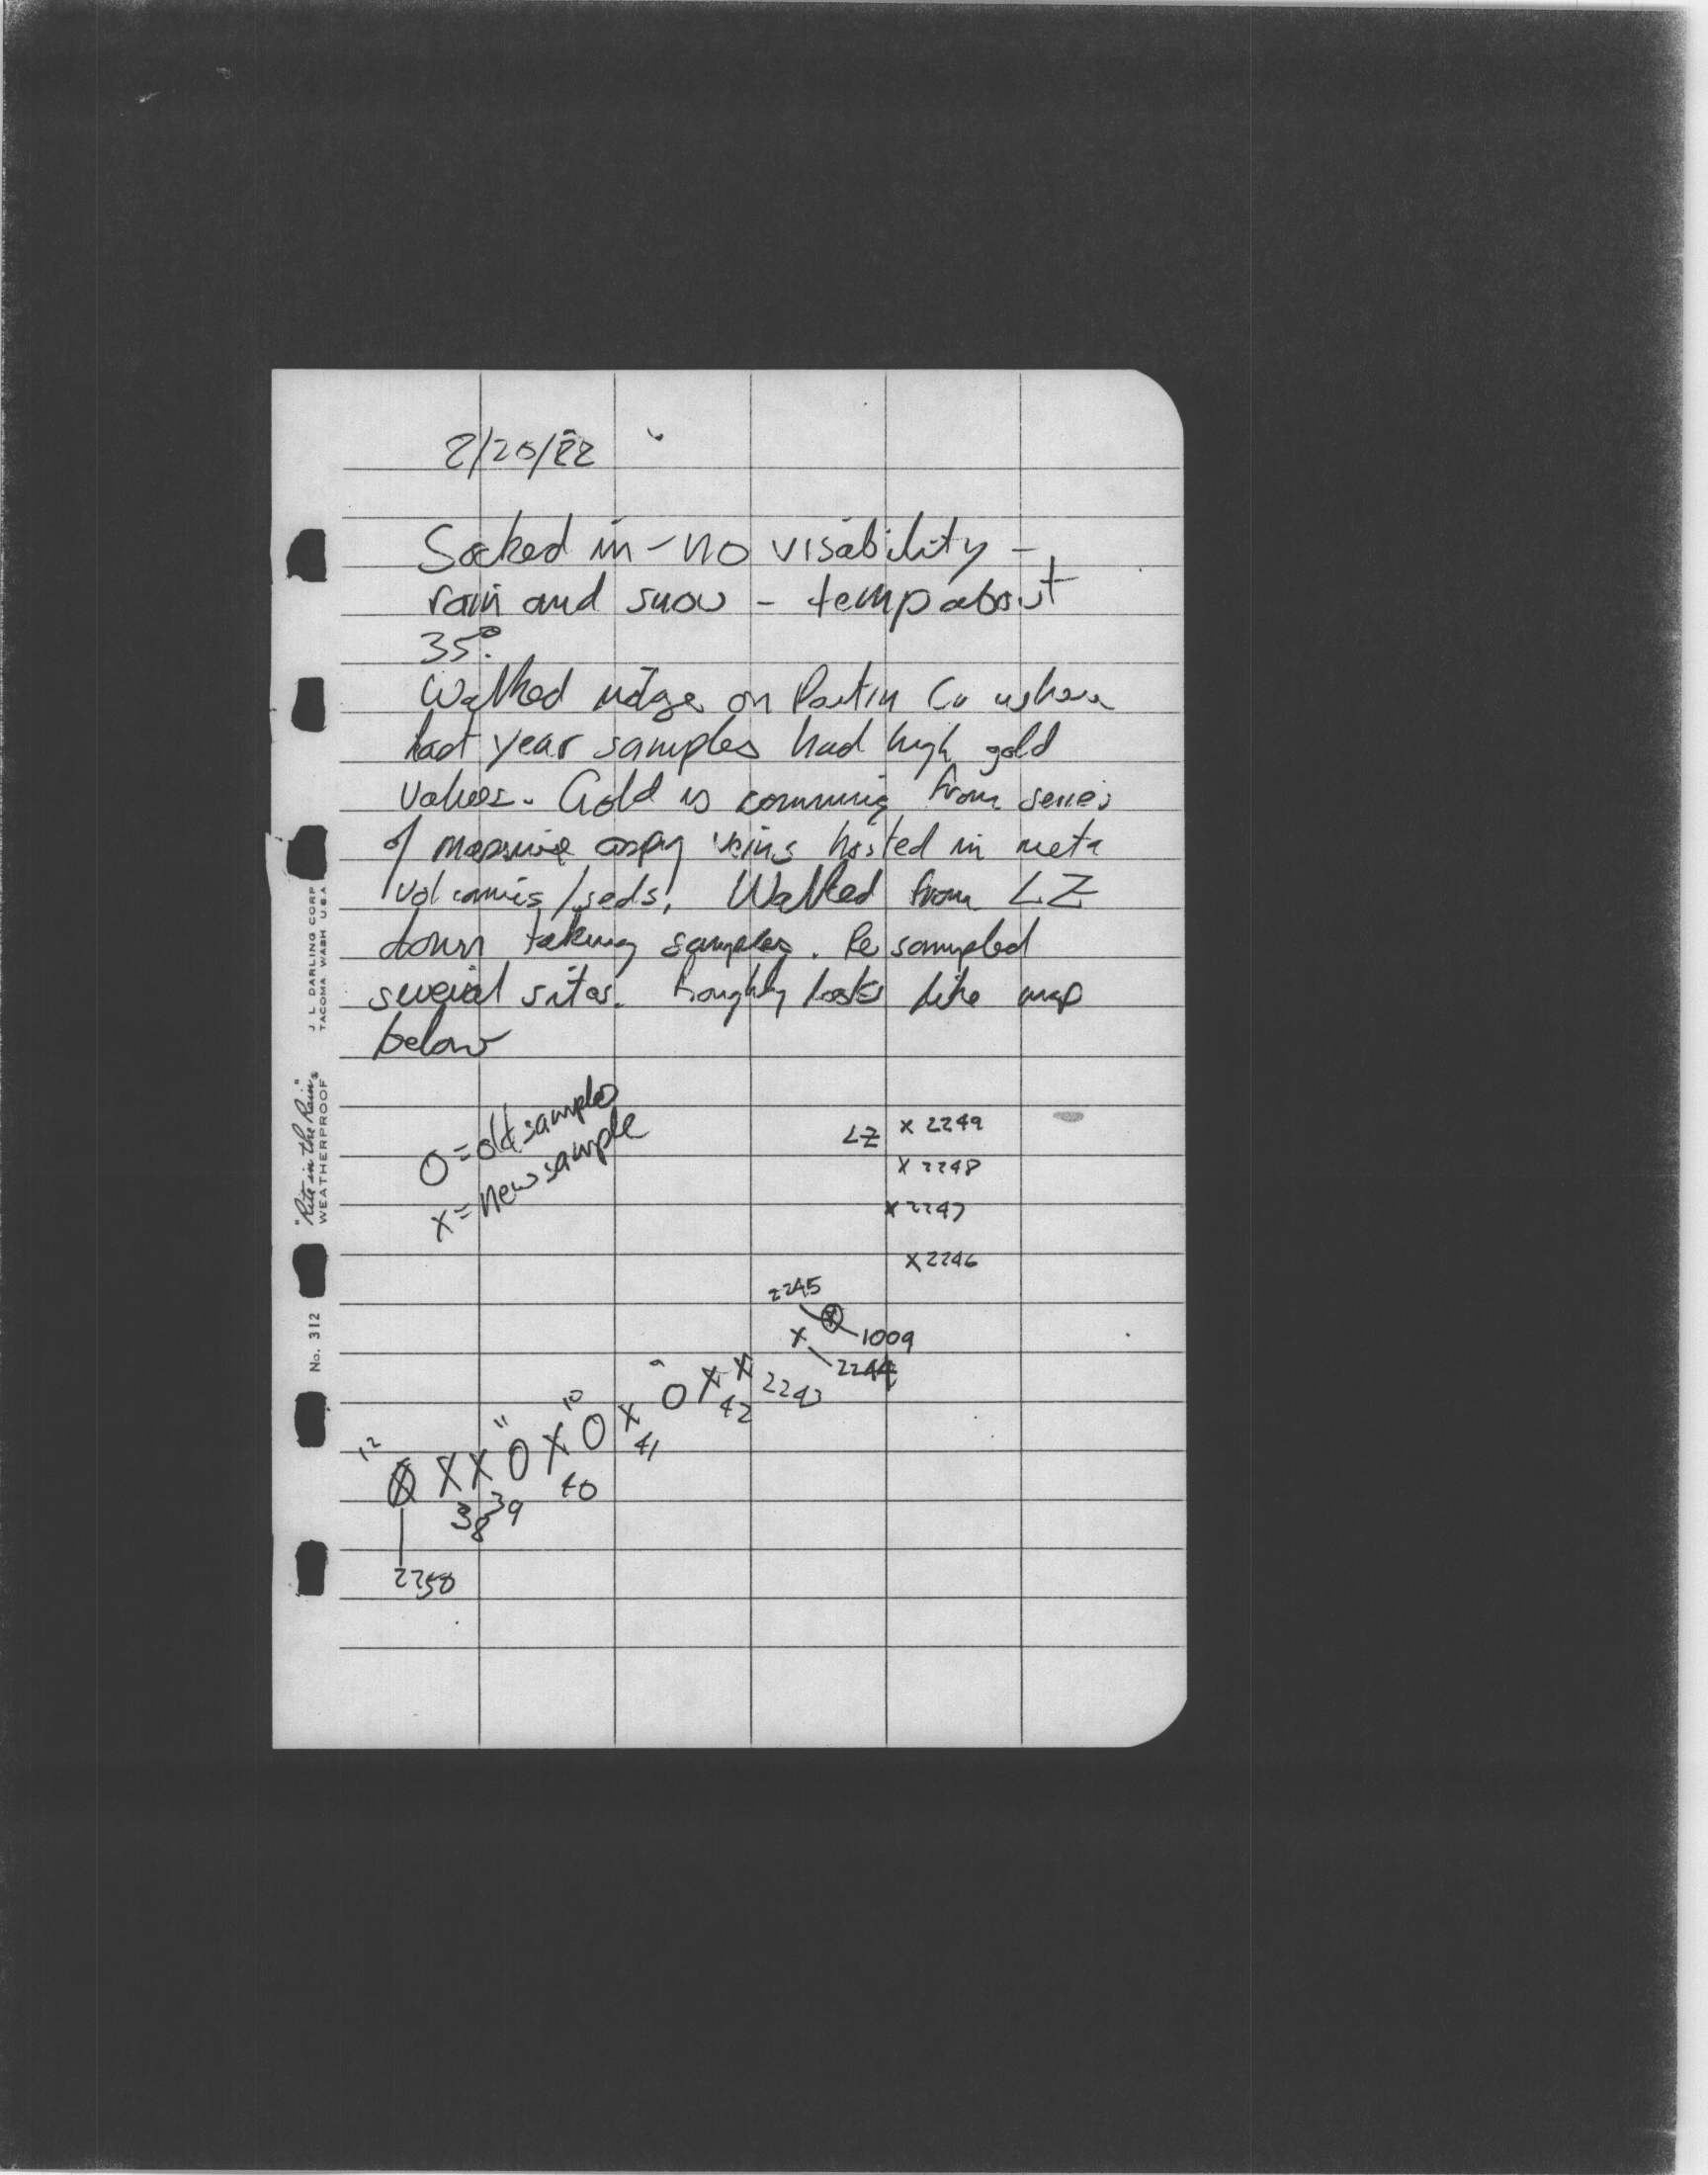 8/20/82
Socked in - no visability -
rain and snow - temp about
35°.
Walked ridge on Partin Cr where
last year samples had high gold
values. Gold is comming from series
of massive aspy veins hosted in meta
volcanics/seds. Walked from LZ
down taking samples. Resampled
several sites. Roughly looks like map
below
O = old sample
X = new sample
LZ X 2249
X 2248
X 2247
X 2246
2245
X 1009
X 2244
9
O X X 2243
42
10
X O X
40 41
11
12
X X O
38 39
2250
J. L. DARLING CORP
TACOMA WASH U.S.A.
"Rite in the Rain"
WEATHERPROOF
No. 312